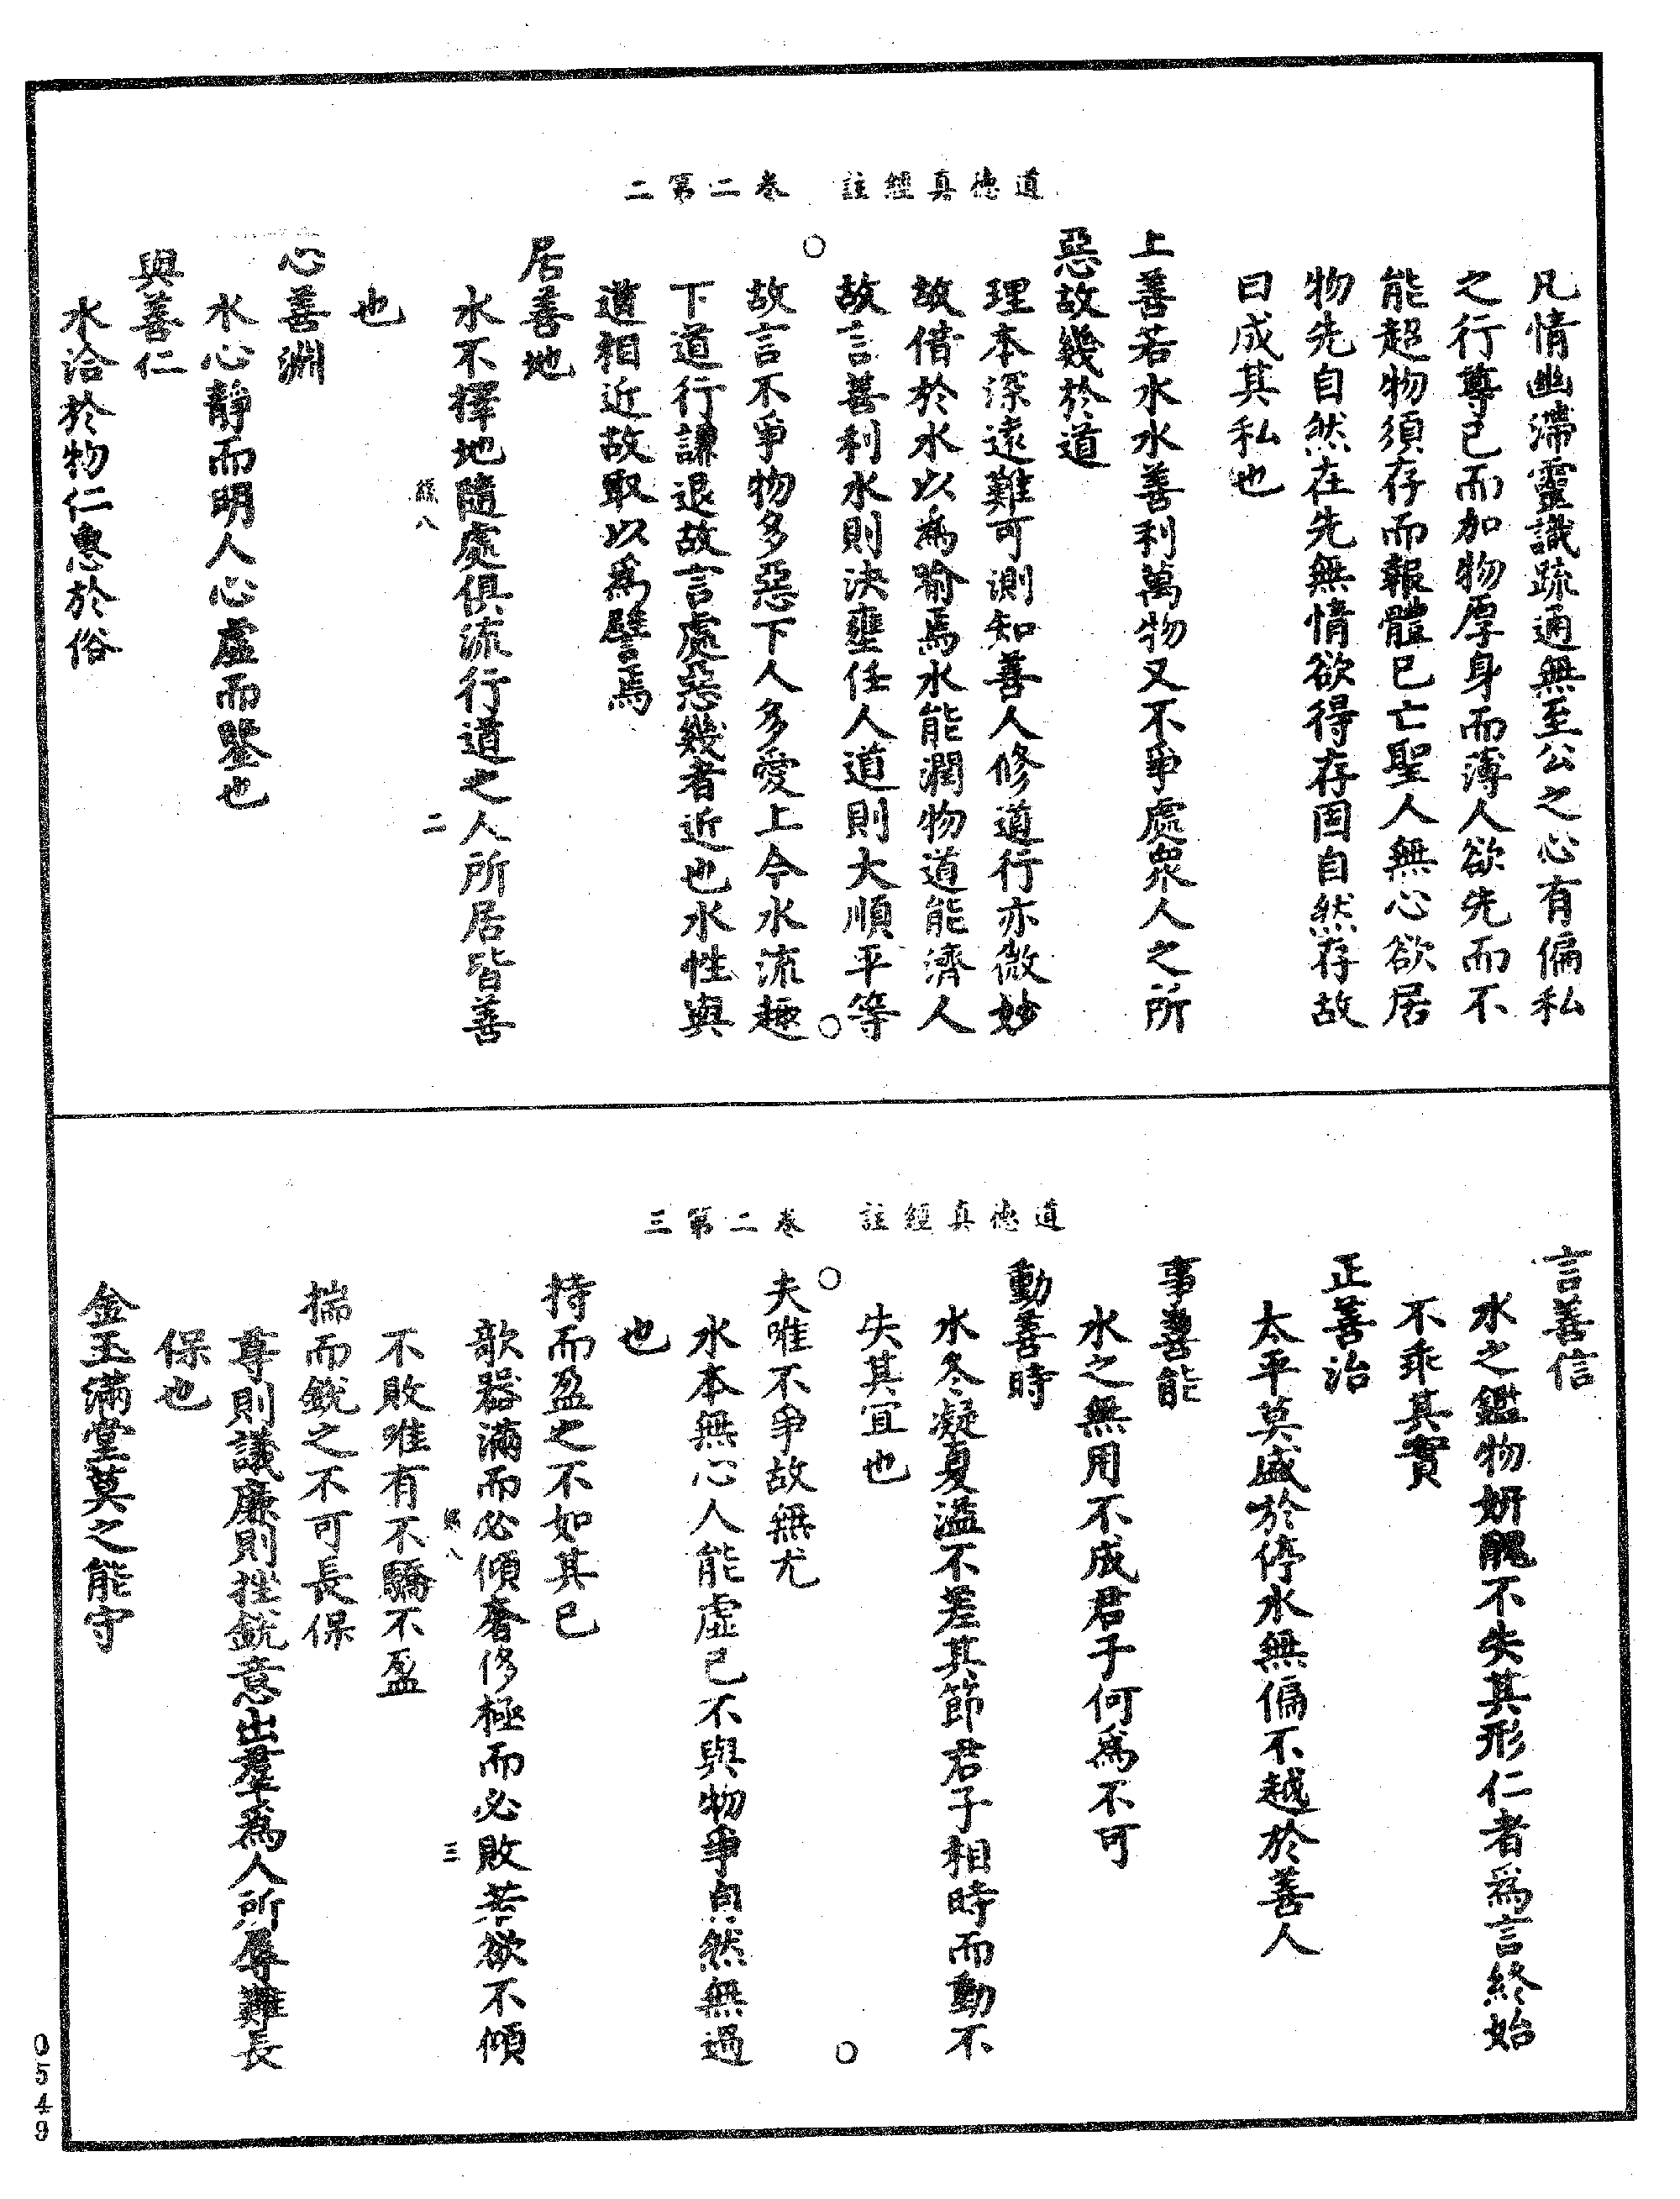 道德真經註　卷二第二
凡情幽滯靈識疏通無至公之心有偏私
之行尊己而加物厚身而薄人欲先而不
能超物須存而報體已亡聖人無心欲居
物先自然在先無情欲得存固自然存故
曰成其私也
上善若水水善利萬物又不爭處衆人之所
惡故幾於道
理本深遠難可測知善人修道行亦微妙
故借於水以為喻焉水能潤物道能濟人
故言善利水則決壅任人道則大順平等
故言不爭物多惡下人多愛上今水流趣
下道行謙退故言處惡幾者近也水性與
道相近故取以為譬焉
居善地
水不擇地隨處俱流行道之人所居皆善
八　二
也
心善淵
水心靜而明人心虛而鑒也
與善仁
水洽於物仁惠於俗
道德真經註　卷二第三
言善信
水之鑑物妍醜不失其形仁者為言終始
不乖其實
正善治
太平莫盛於停水無偏不越於善人
事善能
水之無用不成君子何為不可
動善時
水冬凝夏溢不差其節君子相時而動不
失其宜也
夫唯不爭故無尤
水本無心人能虛己不與物爭自然無過
也
持而盈之不如其已
欹器滿而必傾奢侈極而必敗若欲不傾
八　三
不敗唯有不驕不盈
揣而銳之不可長保
尊則議廉則挫銳意出羣為人所辱難長
保也
金玉滿堂莫之能守
0549